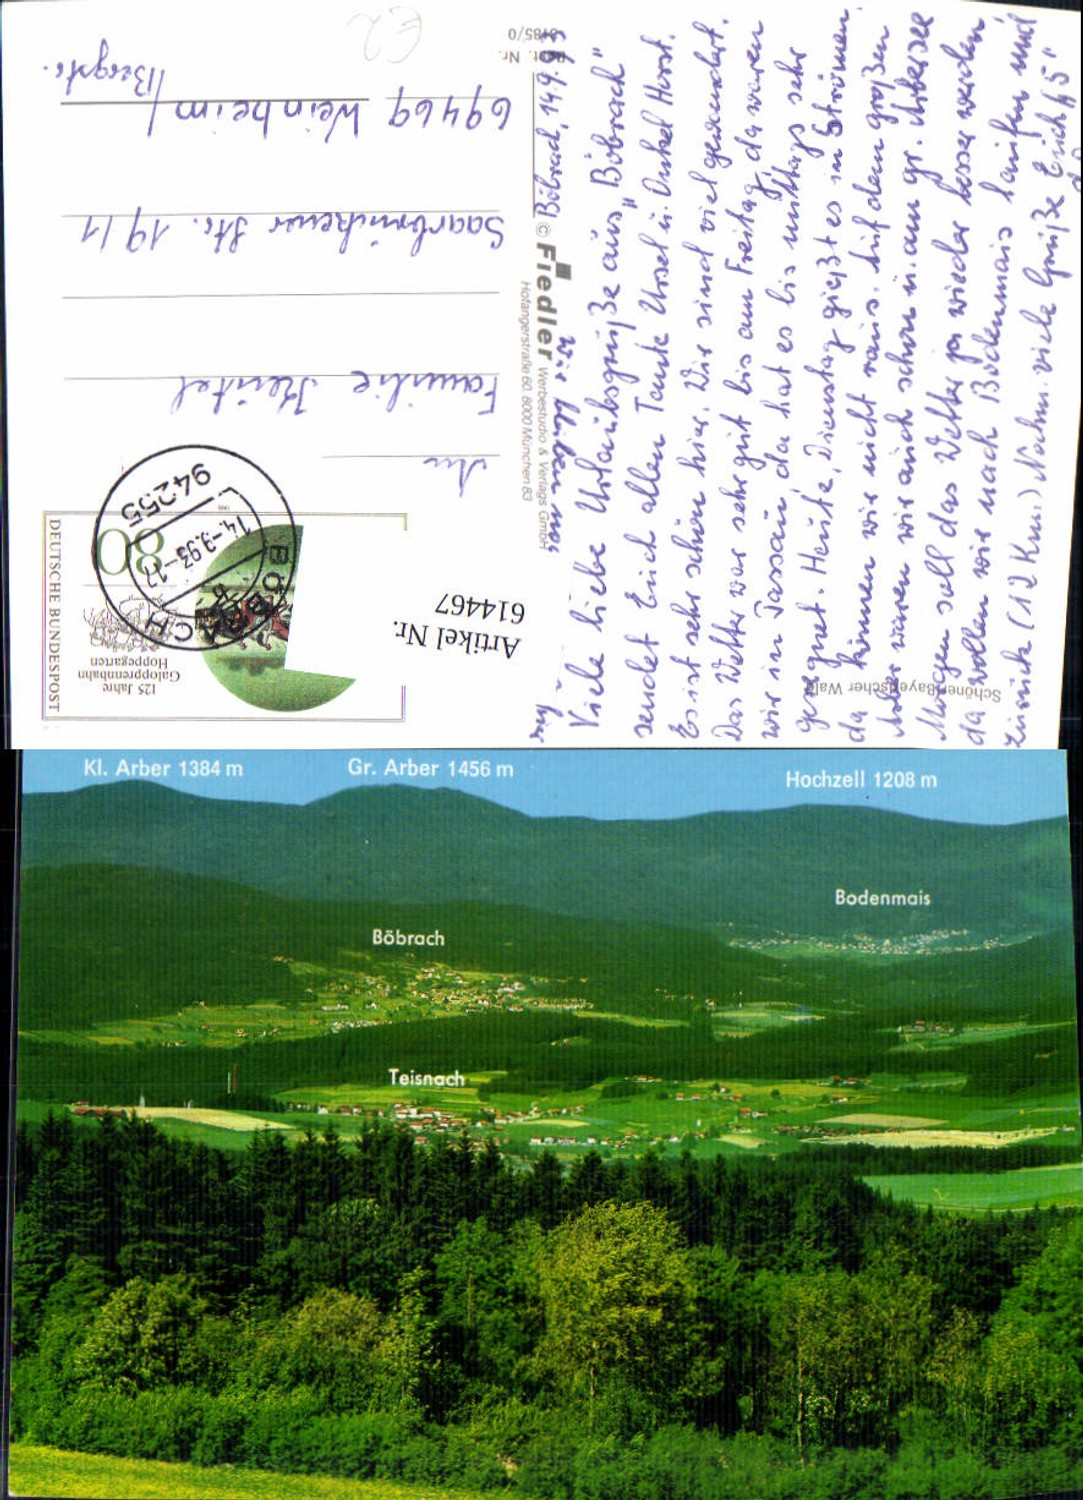 Böbrach, 14.9.93
Viele liebe Urlaubsgrüße aus "Böbrach"
sendet Euch allen Tante Ursel u. Onkel Horst.
Es ist sehr schön hier. Wir sind viel gewandert.
Das Wetter war sehr gut bis am Freitag, da waren
wir in Passau da hat es bis mittags sehr
geregnet. Heute, Dienstag gießt es in Strömen.
da können wir nicht raus. Auf dem großen
Arber waren wir auch schon u. am gr. Arbersee
Morgen soll das Wetter ja wieder besser werden
da wollen wir nach Bodenmais laufen und
zurück (12 Km.) Nochm. viele Grüße Euch
wir bleiben
Schöner Bayerischer Wald
© Fiedler Werbestudio & Verlags GmbH
Hofangerstraße 60 8000 München 83
Best. Nr.
8185/0
€2
An
Familie
Saarbrückener Str. 19/1
69469 Weinheim /
Bergstr.
DEUTSCHE BUNDESPOST
80
125 Jahre
Galopprennbahn
Hoppegarten
94255
14.-9.93-17
BÖBRACH
Artikel Nr.
614467
Kl. Arber 1384 m
Gr. Arber 1456 m
Hochzell 1208 m
Bodenmais
Böbrach
Teisnach